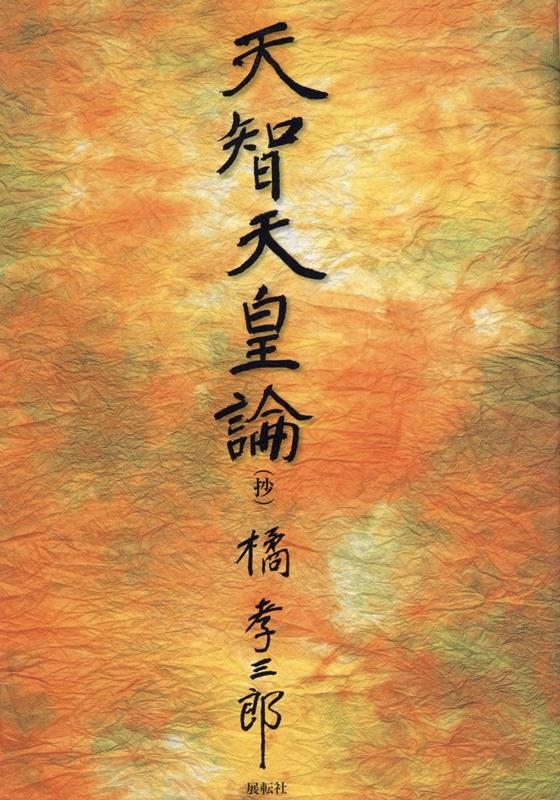 天智天皇論
(抄)
橘孝三郎
展転社